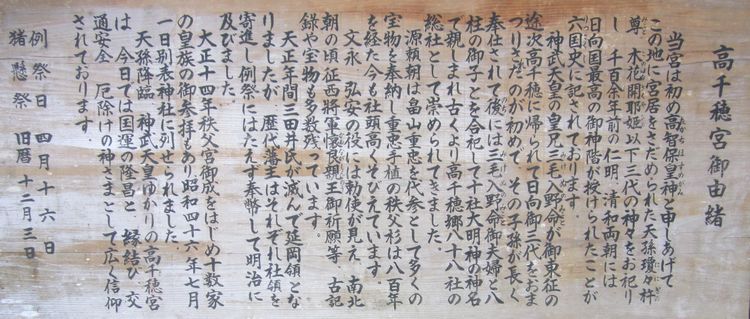 高千穂宮御由緒
当宮は初め高智保皇神と申しあげて
この地に宮居をさだめられた天孫瓊々杵
尊 木花開耶姫以下三代の神々をお祀り
し 千百余年前の仁明、清和両朝には
日向国最高の御神階が授けられたことが
六国史に記されております。
神武天皇の皇兄三毛入野命が御東征の
途次高千穂に帰られて日向御三代をおま
つりさだのが初めで、その子孫が長く
奉仕されて後には三毛入野命御夫婦と八
柱の御子とを合祀して十社大明神の神名
で親しまれ古くより高千穂郷八十八社の
総社として崇められてきました。
源頼朝は畠山重忠を代参として多くの
宝物を奉納し重忠手植の秩父杉は八百年
を経た今も社頭高くそびえています。
文永、弘安の役には勅使が見え、南北
朝の頃征西将軍懐良親王御祈願等、古記
録や宝物も多数残っています。
天正年間三田井氏が滅んで延岡領とな
りましたが、歴代藩主はそれぞれ社領を
寄進し例祭にはたえず奉幣して明治に
及びました。
大正十四年秩父宮御成をはじめ十数家
の皇族の御参拝もあり昭和四十六年七月
一日別表神社に列せられました。
天孫降臨、神武天皇ゆかりの高千穂宮
は、今日では国運の隆昌と、縁結び、交
通安全、厄除けの神さまとして広く信仰
されております。
例祭日 四月十六日
猪懸祭 旧暦十二月三日